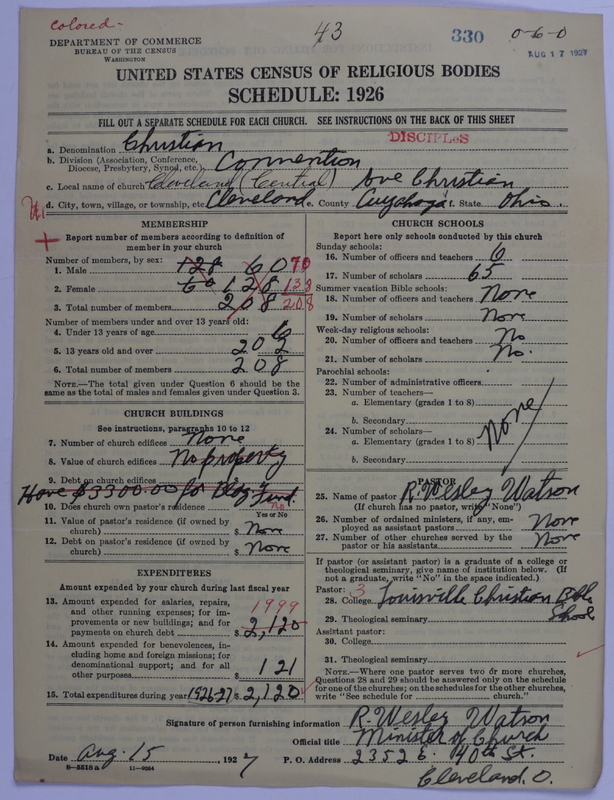 Colored-
43
330
0-6-0
AUG 17 1927
DEPARTMENT OF COMMERCE
BUREAU OF THE CENSUS
WASHINGTON
UNITED STATES CENSUS OF RELIGIOUS BODIES
SCHEDULE: 1926
FILL OUT A SEPARATE SCHEDULE FOR EACH CHURCH. SEE INSTRUCTIONS ON THE BACK OF THIS SHEET
DISCIPLES
a. Denomination Christian
b. Division (Association, Conference, Diocese, Presbytery, Synod, etc.) Convention
c. Local name of church Cleveland (Central) Ave Christian
d. City, town, village, or township, etc. Cleveland e. County Cuyahoga f. State Ohio.
MEMBERSHIP
Report number of members according to definition of member in your church
Number of members, by sex:
1. Male 128 60 70
2. Female 60 128 138
3. Total number of members 208 208
Number of members under and over 13 years old:
4. Under 13 years of age 6
5. 13 years old and over 202
6. Total number of members 208
NOTE.—The total given under Question 6 should be the same as the total of males and females given under Question 3.
CHURCH BUILDINGS
See instructions, paragraphs 10 to 12
7. Number of church edifices None
8. Value of church edifices No property
9. Debt on church edifices
Have $3300.00 for Bldg Fund.
10. Does church own pastor's residence No
Yes or No
11. Value of pastor's residence (if owned by church) $ None
12. Debt on pastor's residence (if owned by church) $ None
EXPENDITURES
Amount expended by your church during last fiscal year
13. Amount expended for salaries, repairs, and other running expenses; for improvements or new buildings; and for payments on church debt $ 2,120 1999
14. Amount expended for benevolences, including home and foreign missions; for denominational support; and for all other purposes 121
15. Total expenditures during year 1926-27 $ 2,120
CHURCH SCHOOLS
Report here only schools conducted by this church
Sunday schools:
16. Number of officers and teachers 6
17. Number of scholars 65
Summer vacation Bible schools:
18. Number of officers and teachers None
19. Number of scholars None
Week-day religious schools:
20. Number of officers and teachers No
21. Number of scholars No.
Parochial schools:
22. Number of administrative officers
23. Number of teachers—
a. Elementary (grades 1 to 8)
b. Secondary
24. Number of scholars— None
a. Elementary (grades 1 to 8)
b. Secondary
PASTOR
25. Name of pastor R. Wesley Watson
(If church has no pastor, write "None")
26. Number of ordained ministers, if any, employed as assistant pastors None
27. Number of other churches served by the pastor or his assistants None
If pastor (or assistant pastor) is a graduate of a college or theological seminary, give name of institution below. (If not a graduate, write "No" in the space indicated.)
Pastor: 3
28. College Louisville Christian Bible School
29. Theological seminary
Assistant pastor:
30. College
31. Theological seminary
NOTE.—Where one pastor serves two or more churches, Questions 28 and 29 should be answered only on the schedule for one of the churches; on the schedules for the other churches, write "See schedule for ____ church."
Signature of person furnishing information R. Wesley Watson
Official title Minister of Church
Date Aug. 15 1927 P. O. Address 2352 E. 40th St.
Cleveland. O.
8-5518a 11-9064